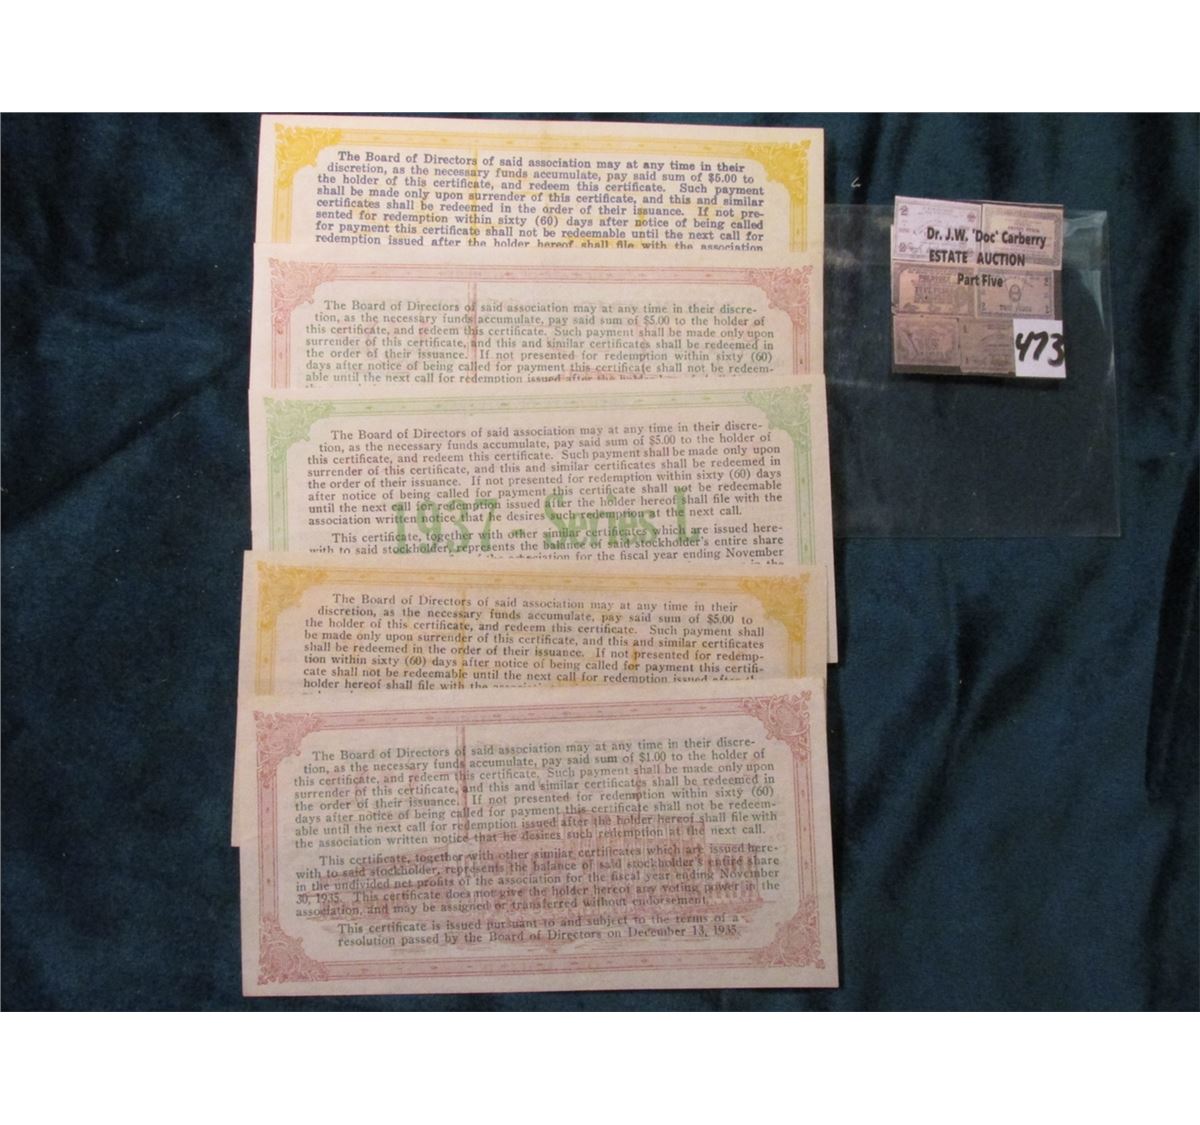 The Board of Directors of said association may at any time in their
discretion, as the necessary funds accumulate, pay said sum of $5.00 to
the holder of this certificate, and redeem this certificate. Such payment
shall be made only upon surrender of this certificate, and this and similar
certificates shall be redeemed in the order of their issuance. If not pre-
sented for redemption within sixty (60) days after notice of being called
for payment this certificate shall not be redeemable until the next call for
redemption issued after the holder hereof shall file with the association
The Board of Directors of said association may at any time in their discre-
tion, as the necessary funds accumulate, pay said sum of $5.00 to the holder of
this certificate, and redeem this certificate. Such payment shall be made only upon
surrender of this certificate, and this and similar certificates shall be redeemed in
the order of their issuance. If not presented for redemption within sixty (60)
days after notice of being called for payment this certificate shall not be redeem-
able until the next call for redemption issued after the holder
The Board of Directors of said association may at any time in their discre-
tion, as the necessary funds accumulate, pay said sum of $5.00 to the holder of
this certificate, and redeem this certificate. Such payment shall be made only upon
surrender of this certificate, and this and similar certificates shall be redeemed in
the order of their issuance. If not presented for redemption within sixty (60) days
after notice of being called for payment this certificate shall not be redeemable
until the next call for redemption issued after the holder hereof shall file with the
association written notice that he desires such redemption at the next call.
1937 - Series L
This certificate, together with other similar certificates which are issued here-
with to said stockholder, represents the balance of said stockholder's entire share
of the association for the fiscal year ending November
in the
The Board of Directors of said association may at any time in their
discretion, as the necessary funds accumulate, pay said sum of $5.00 to
the holder of this certificate, and redeem this certificate. Such payment shall
be made only upon surrender of this certificate, and this and similar certificates
shall be redeemed in the order of their issuance. If not presented for redemp-
tion within sixty (60) days after notice of being called for payment this certifi-
cate shall not be redeemable until the next call for redemption issued after the
holder hereof shall file with the association
The Board of Directors of said association may at any time in their discre-
tion, as the necessary funds accumulate, pay said sum of $1.00 to the holder of
this certificate, and redeem this certificate. Such payment shall be made only upon
surrender of this certificate, and this and similar certificates shall be redeemed in
the order of their issuance. If not presented for redemption within sixty (60)
days after notice of being called for payment this certificate shall not be redeem-
able until the next call for redemption issued after the holder hereof shall file with
the association written notice that he desires such redemption at the next call.
This certificate, together with other similar certificates which are issued here-
with to said stockholder, represents the balance of said stockholder's entire share
in the undivided net profits of the association for the fiscal year ending November
30, 1935. This certificate does not give the holder hereof any voting power in the
association, and may be assigned or transferred without endorsement.
This certificate is issued pursuant to and subject to the terms of a
resolution passed by the Board of Directors on December 13, 1935.
Dr. J.W. 'Doc' Carberry
ESTATE AUCTION
Part Five
473